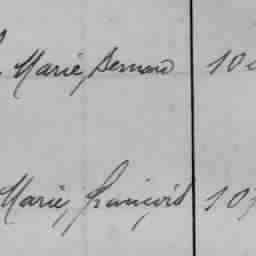 Marie, Bernard 10
Marie, François 10